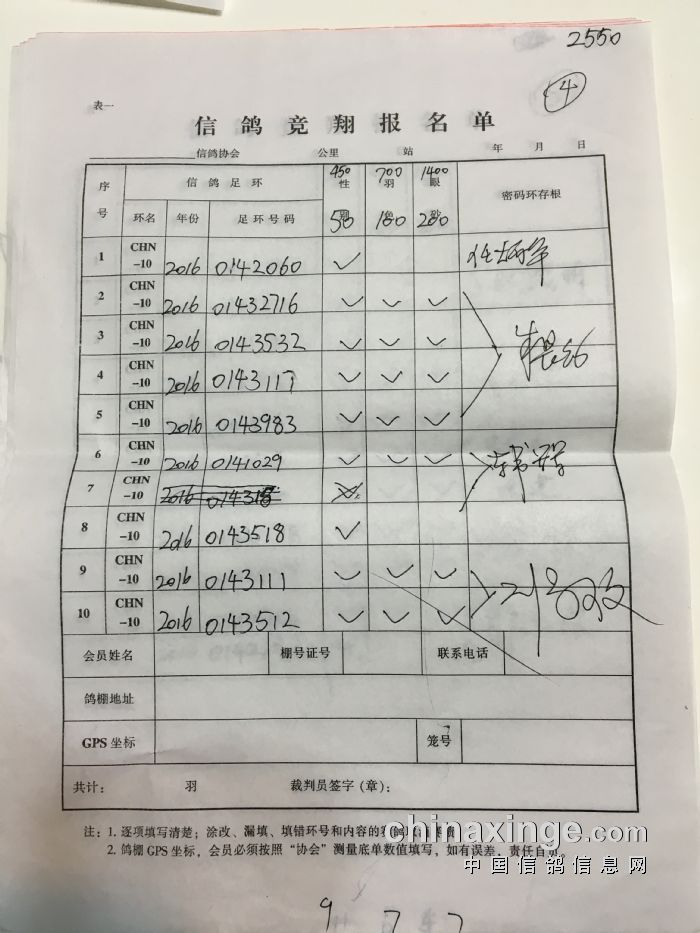 2550
4
表一
信鸽竞翔报名单
信鸽协会 公里 站 年 月 日
序号 信鸽足环 450 700 1400 密码环存根
性 羽 眼
环名 年份 足环号码 50 100 200
1 CHN-10 2016 0142060 ✓
2 CHN-10 2016 01432716 ✓ ✓ ✓
3 CHN-10 2016 0143532 ✓ ✓ ✓
4 CHN-10 2016 0143117 ✓ ✓ ✓
5 CHN-10 2016 0143983 ✓ ✓ ✓
6 CHN-10 2016 0141029 ✓ ✓ ✓
7 CHN-10 2016
8 CHN-10 2016 0143518 ✓
9 CHN-10 2016 0143111 ✓ ✓ ✓
10 CHN-10 2016 0143512 ✓ ✓ ✓
会员姓名 棚号证号 联系电话
鸽棚地址
GPS坐标 笼号
共计： 羽 裁判员签字（章）：
注：1. 逐项填写清楚；涂改、漏填、填错环号和内容的
2. 鸽棚GPS坐标，会员必须按照“协会”测量底单数值填写，如有误差，责任自负。
chinaxinge.com
中国信鸽信息网
9 7 7